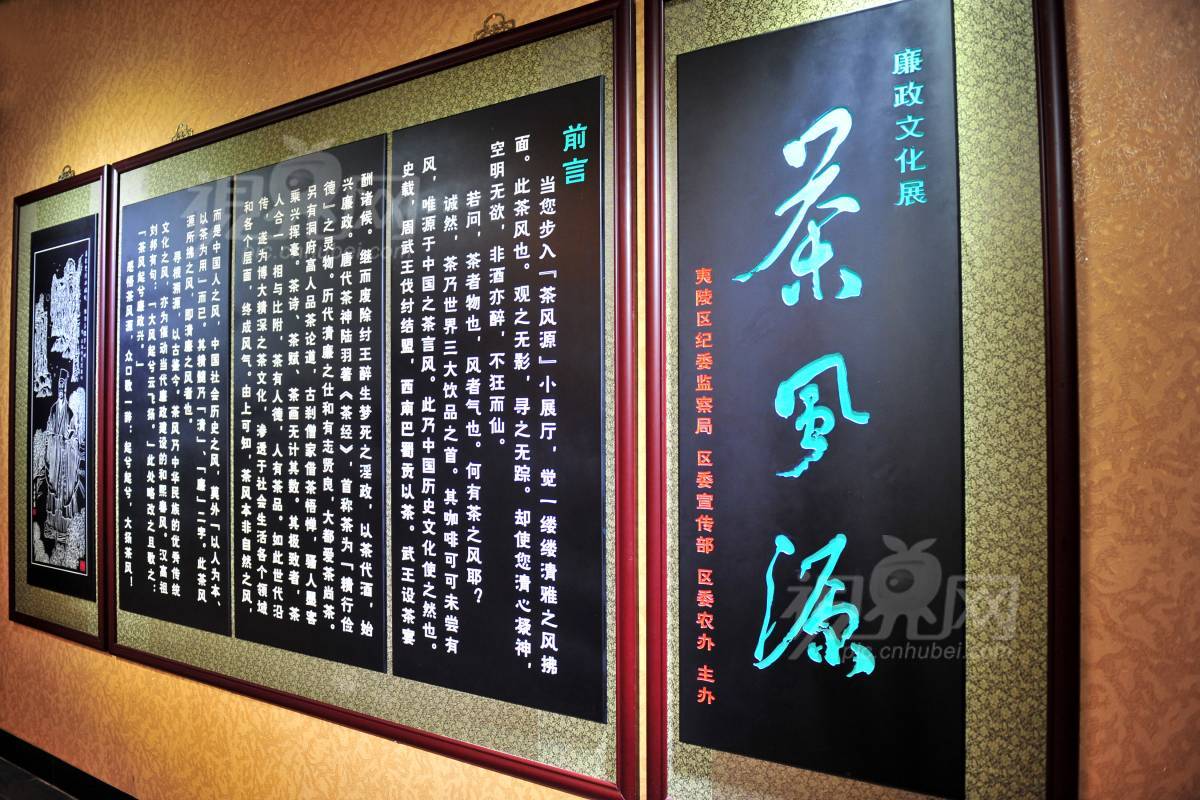 廉政文化展
茶风源
夷陵区纪委监察局 区委宣传部 区委农办 主办
前言
当您步入「茶风源」小展厅，觉一缕缕清雅之风拂
面。此茶风也。观之无影，寻之无踪。却使您清心凝神，
空明无欲，非酒亦醉，不狂而仙。
若问，茶者物也，风者气也。何有茶之风耶？
诚然，茶乃世界三大饮品之首。其咖啡可可未尝有
风，唯源于中国之茶言风。此乃中国历史文化使之然也。
史载，周武王伐纣结盟，西南巴蜀贡以茶。武王设茶宴
酬诸候。继而废除纣王醉生梦死之淫政，以茶代酒，始
兴廉政。唐代茶神陆羽著《茶经》，首称茶为「精行俭
德」之灵物。历代清廉之仕和有志贤良，大都爱茶尚茶。
另有洞府高人品茶论道，古刹僧家借茶悟禅，骚人墨客
乘兴挥毫。茶诗、茶赋、茶画无计其数。其极致者，茶
人合一，相与比附，茶有人德，人有茶品。如此世代沿
传，遂为博大精深之茶文化，渗透于社会生活各个领域
和各个层面，终成风气。由上可知，茶风本非自然之风，
而是中国人之风，中国社会历史之风，莫外「以人为本、
以茶为用」而已。其精髓乃「清」、「廉」二字，此茶风
源所拂之风，即清廉之风者也。
寻根溯源，以古鉴今，茶风乃中华民族的优秀传统
文化之风，亦为催动当代廉政建设的和熙春风。汉高祖
刘邦有句：「大风起兮云飞扬。」此处略改之且歌之：
「茶风起兮廉政兴。」
感悟茶风源，众口歌一辞：起兮起兮，大扬茶风！
视界网
pic.cnhubei.com
视界网
pic.cnhubei.com